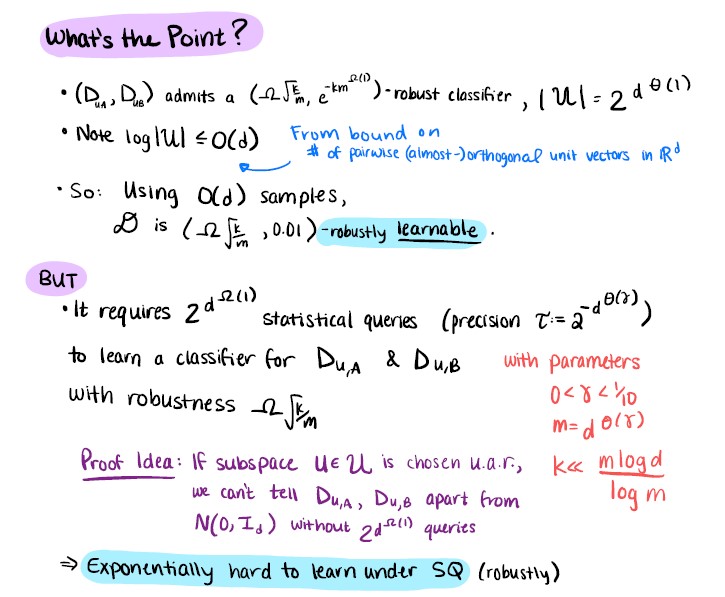 What's the Point?
• (D_{u_A}, D_{u_B}) admits a (Ω√(k/m), e^{-km^{Ω(1)}})-robust classifier, |U| = 2^{d^{Θ(1)}}
• Note log|U| ≤ O(d)
From bound on
# of pairwise (almost-)orthogonal unit vectors in ℝ^d
• So: Using O(d) samples,
𝒟 is (Ω√(k/m), 0.01)-robustly learnable.
BUT
• It requires 2^{d^{Ω(1)}} statistical queries (precision τ := 2^{-d^{Θ(γ)}})
to learn a classifier for D_{u,A} & D_{u,B}
with robustness Ω√(k/m)
with parameters
0 < γ < 1/10
m = d^{Θ(γ)}
k ≪ (m log d)/(log m)
Proof Idea: If subspace U ∈ U is chosen u.a.r.,
we can't tell D_{u,A}, D_{u,B} apart from
N(0, I_d) without 2^{d^{Ω(1)}} queries
⇒ Exponentially hard to learn under SQ (robustly)